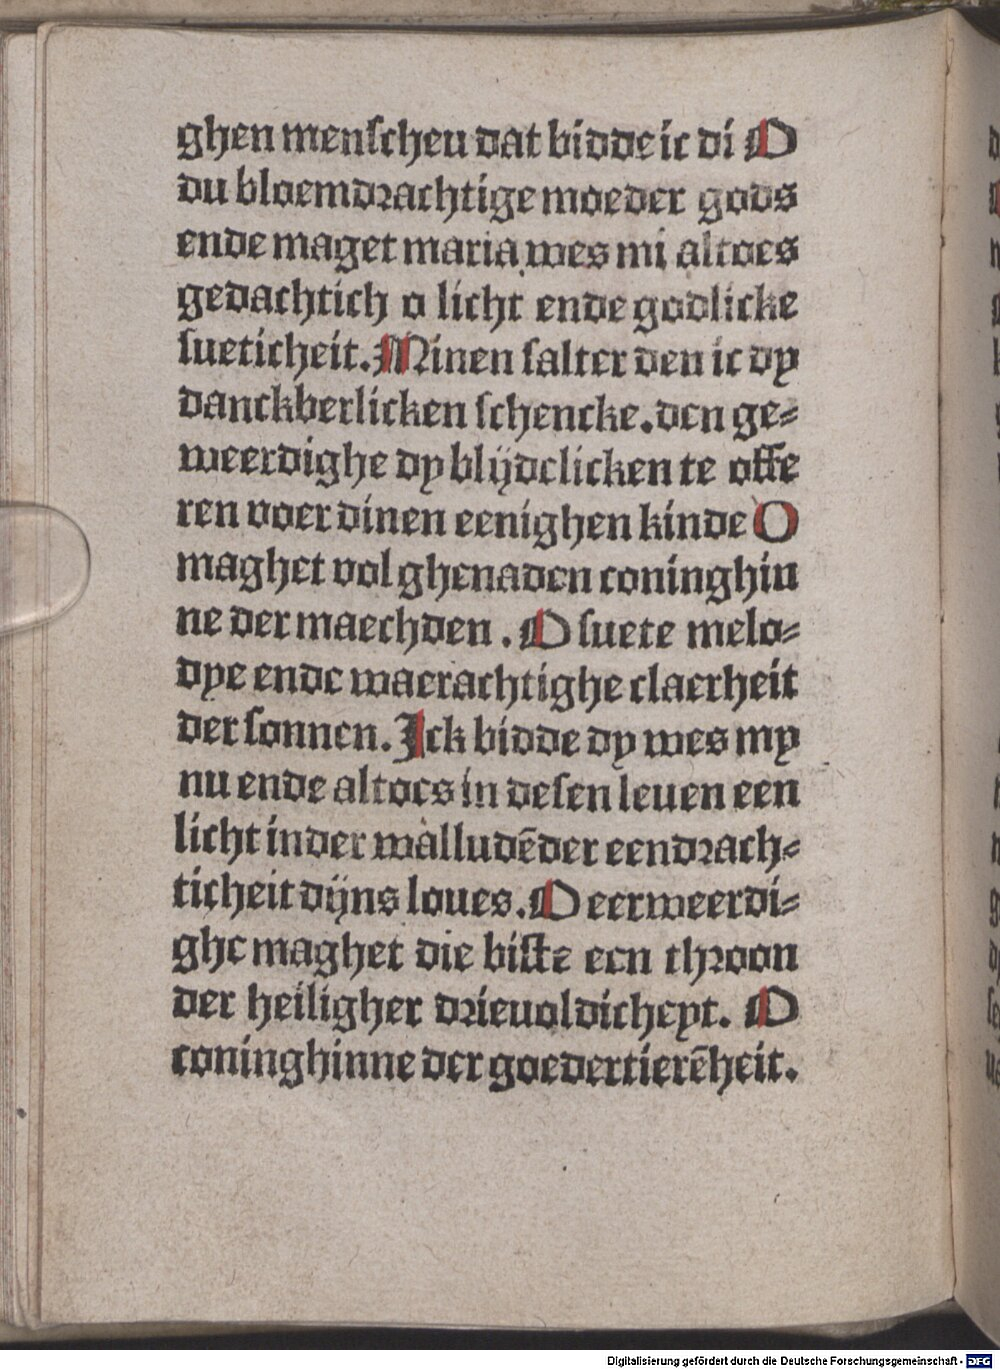 ghen menscheu dat bidde ic di O
du bloemdrachtige moeder gods
ende maget maria wes mi altoes
gedachtich o licht ende godlicke
sueticheit. Minen salter den ic dy
danckberlicken schencke. den ge⸗
weerdighe dy blijdelicken te offe
ren voer dinen eenighen kinde O
maghet vol ghenaden coninghin
ne der maechden . O suete melo⸗
dye ende waerachtighe claerheit
der sonnen. Ick bidde dy wes my
nu ende altoes in desen leuen een
licht inder walludēder eendrach⸗
ticheit dijns loues. O eerweerdi⸗
ghe maghet die biste een throon
der heiligher drieuoldicheyt. O
coninghinne der goedertierēheit.
Digitalisierung gefördert durch die Deutsche Forschungsgemeinschaft - DFG